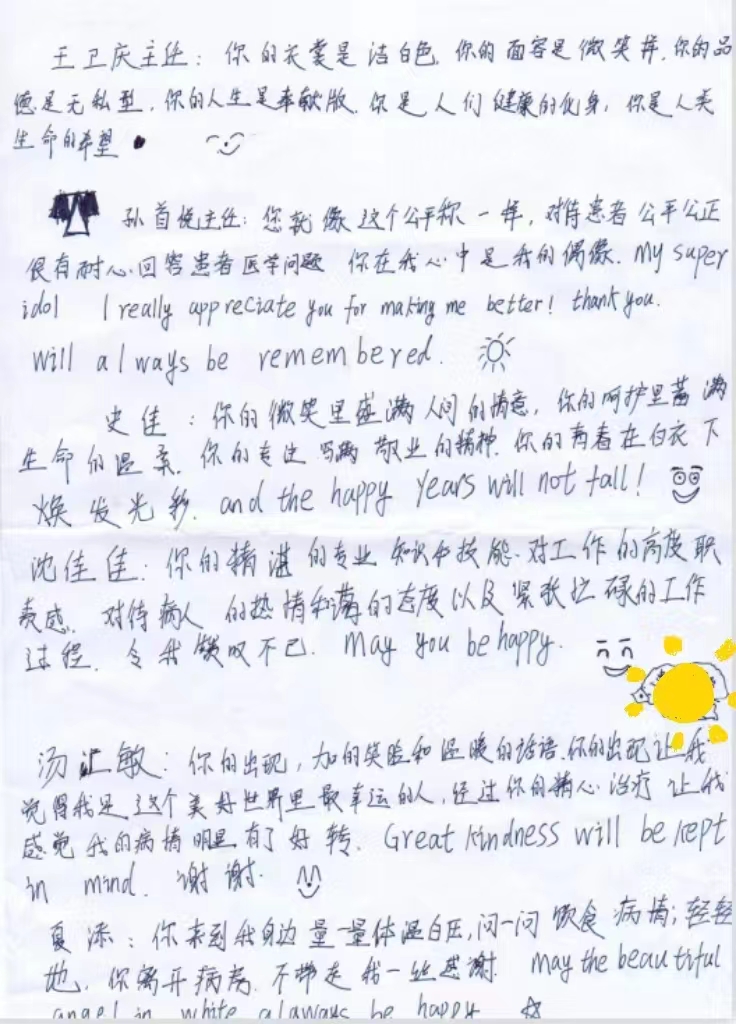 王卫庆主任：你的衣裳是洁白色，你的面容是微笑样，你的品
德是无私型，你的人生是奉献版，你是人们健康的化身，你是人类
生命的希望
孙首悦主任：您就像这个公平称一样，对待患者公平公正
很有耐心回答患者医学问题 你在我心中是我的偶像. My super
idol I really appreciate you for making me better! thank you.
will always be remembered.
史佳：你的微笑里盛满人间的情意，你的呵护里蓄满
生命的温柔，你的专注写满敬业的精神，你的青春在白衣下
焕发光彩. and the happy years will not fall!
沈佳佳：你的精湛的专业知识和技能、对工作的高度职
责感，对待病人的热情和蔼的态度以及紧张忙碌的工作
过程，令我赞叹不已. May you be happy.
汤 敏：你的出现，加的笑脸和温暖的话语，你的出现让我
觉得我是这个美好世界里最幸运的人，经过你的精心治疗让我
感觉我的病情明显有了好转. Great kindness will be kept
in mind. 谢谢.
夏添：你来到我身边量一量体温白压，问一问饮食病情；轻轻
地，你离开病房，不带走我一丝感谢. may the beautiful
angel in white alaways be happy